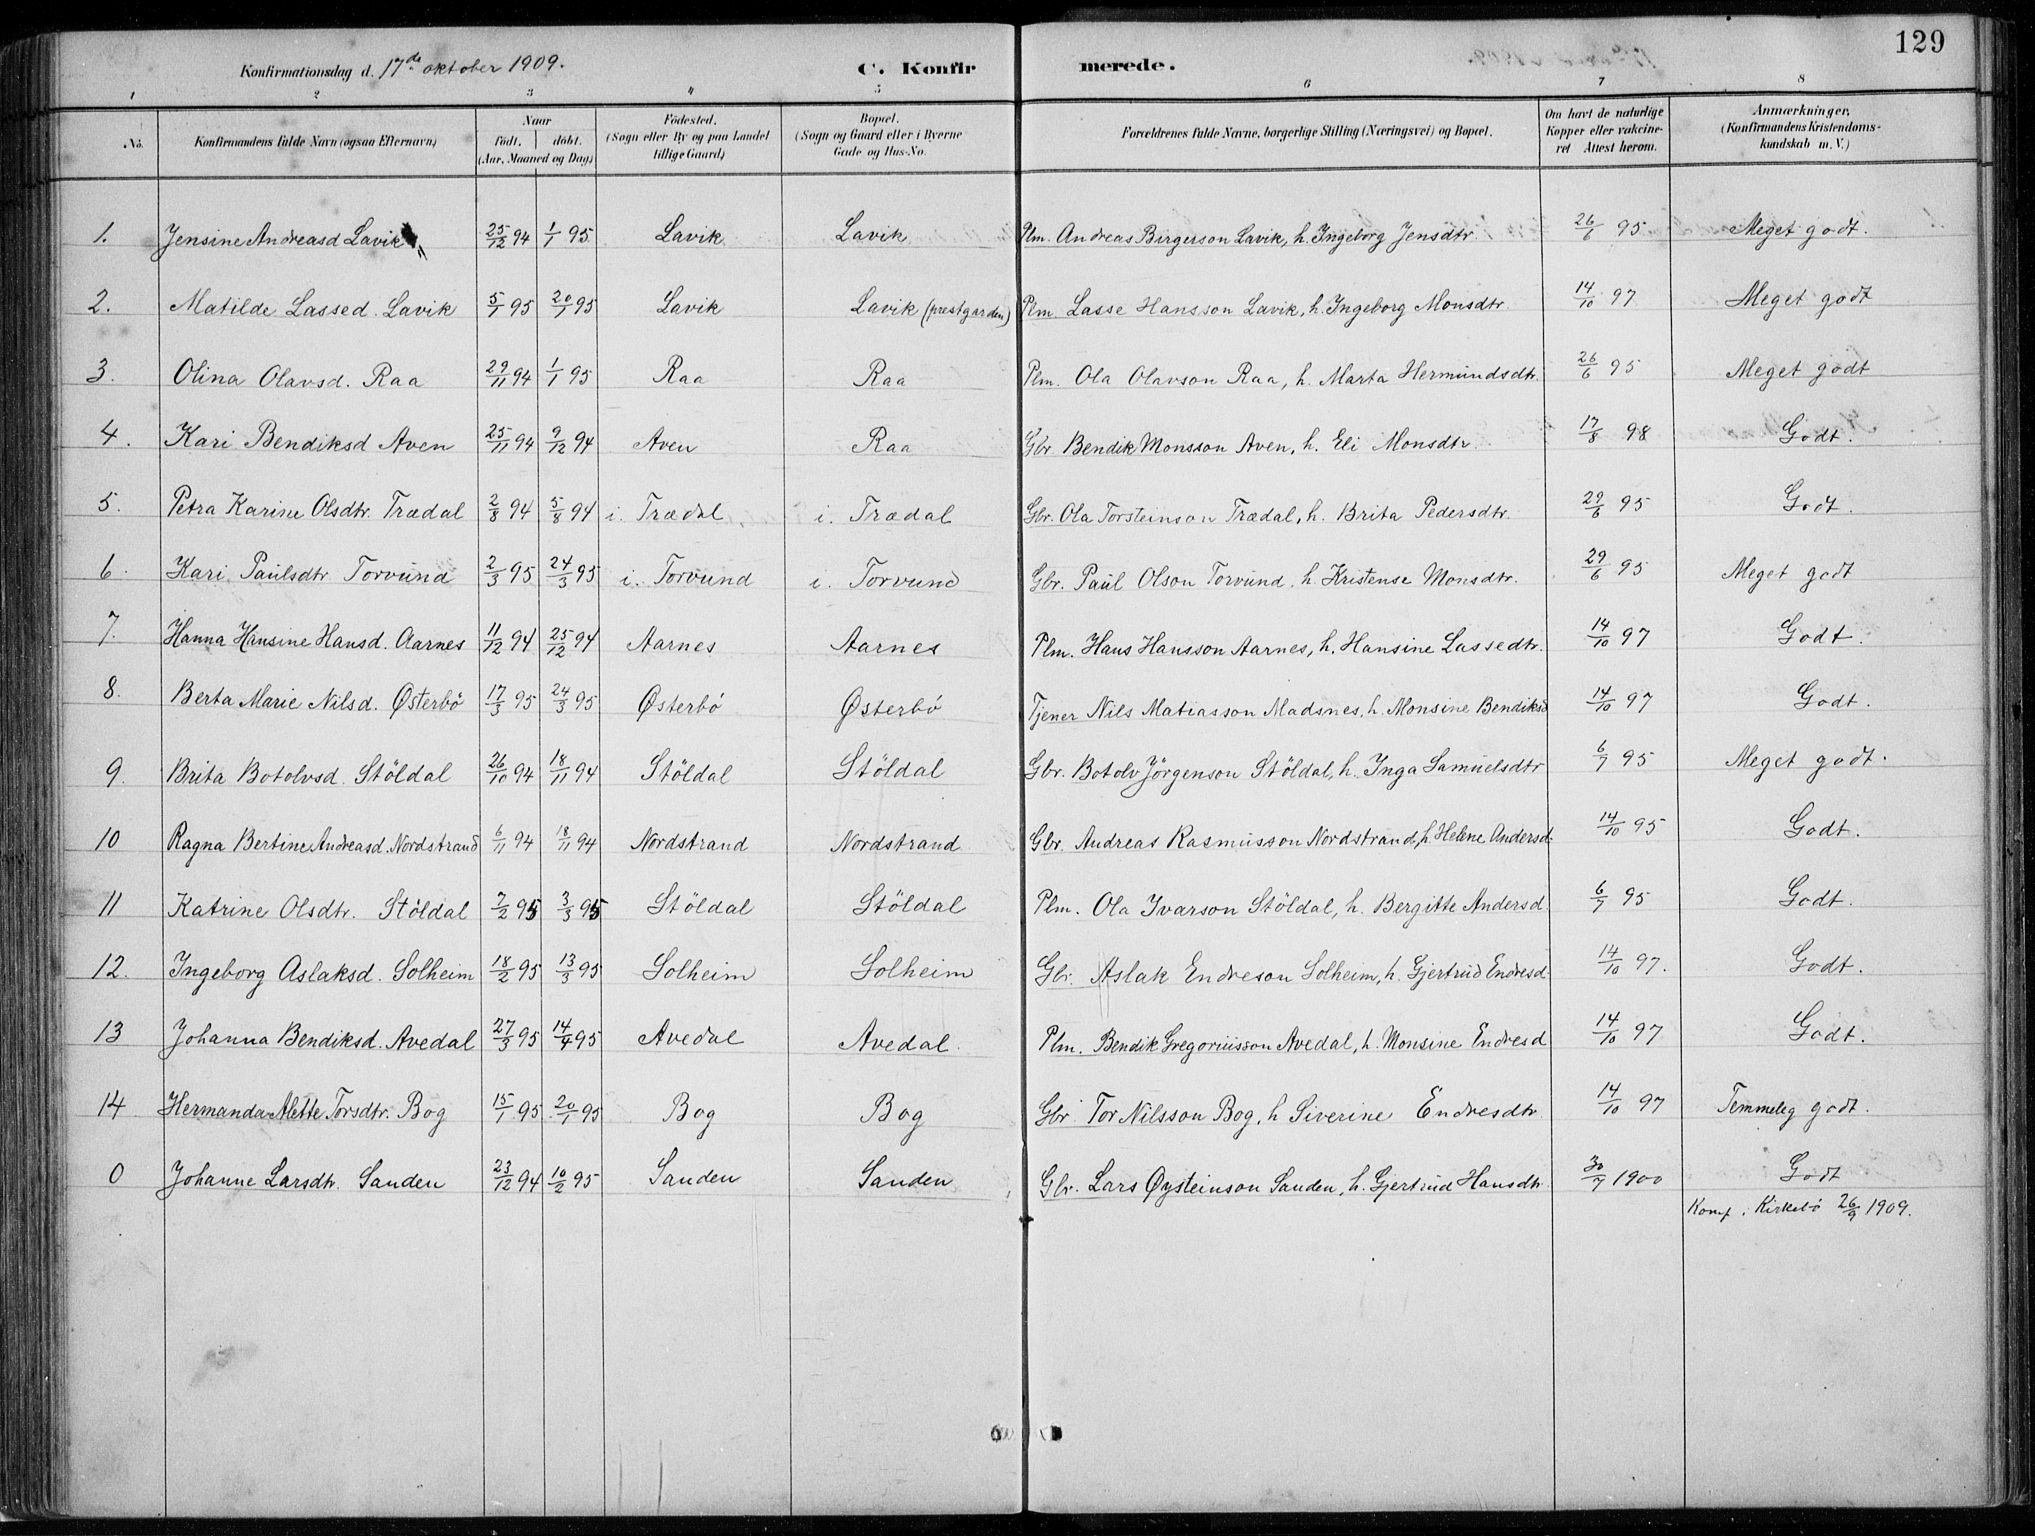 129
Konfirmationsdag d. 17de oktober 1909. C. Konfir merede.
1 2 3 4 5 6 7 8
No. Konfirmandens fulde Navn (ogsaa Efternavn) Naar født. døbt. (Aar, Maaned og Dag) Fødested. (Sogn eller By og paa Landet tillige Gaard) Bopæl. (Sogn og Gaard eller i Byerne Gade og Hus-No. Forældrenes fulde Navne, borgerlige Stilling (Næringsvei) og Bopæl. Om havt de naturlige Kopper eller vakcineret Attest herom. Anmærkninger. (Konfirmandens Kristendomskundskab m. V.)
1. Jensine Andreasd Lavik 25/12 94 1/1 95 Lavik Lavik Plm. Andreas Birgerson Lavik, h. Ingeborg Jensdtr. 26/6 95 Meget godt.
2. Matilde Lassed. Lavik 5/1 95 20/1 95 Lavik Lavik (prestgarden) Plm Lasse Hansson Lavik, h. Ingeborg Monsdtr. 14/10 97 Meget godt
3. Olina Olavsd. Raa 29/11 94 1/1 95 Raa Raa Plm. Ola Olavson Raa, h. Marta Hermundsdtr. 26/6 95 Meget godt
4. Kari Bendiksd Aven 25/11 94 9/12 94 Aven Raa Gbr Bendik Monsson Aven, h. Eli Monsdtr. 17/8 98 Godt.
5. Petra Karine Olsdtr. Trædal 2/8 94 5/8 94 i. Trædal i. Trædal Gbr. Ola Torsteinson Trædal, h. Brita Pedersdtr. 29/6 95 Godt.
6. Kari Paulsdtr Torvund 2/3 95 24/3 95 i. Torvund i. Torvund Gbr. Paul Olson Torvund, h. Kristense Monsdtr. 29/6 95 Meget godt
7. Hanna Hansine Hansd. Aarnes 11/12 94 25/12 94 Aarnes Aarnes Plm. Hans Hansson Aarnes, h. Hansine Lassedtr. 14/10 97 Godt.
8. Berta Marie Nilsd. Østerbö 17/3 95 24/3 95 Østerbö Østerbö Tjener Nils Matiasson Madsnes, h. Monsine Bendiksd 14/10 97 Godt.
9. Brita Botolvsd. Stöldal 26/10 94 18/11 94 Stöldal Stöldal Gbr. Botolv Jörgenson Stöldal, h. Inga Samuelsdtr 6/7 95 Meget godt.
10 Ragna Bertine Andreasd. Nordstrand 6/11 94 18/11 94 Nordstrand Nordstrand Gbr. Andreas Rasmusson Nordstrand, h. Helene Andersd. 14/10 95 Godt.
11 Katrine Olsdtr. Stöldal 7/2 95 3/3 95 Stöldal Stöldal Plm. Ola Ivarson Stöldal, h. Bergitte Andersd. 6/7 95 Godt.
12. Ingeborg Aslaksd. Solheim 18/2 95 13/3 95 Solheim Solheim Gbr. Aslak Endreson Solheim, h. Gjertrud Endresd. 14/10 97. Godt.
13 Johanna Bendiksd. Avedal 27/3 95 14/4 95 Avedal Avedal. Plm. Bendik Gregoriusson Avedal, h. Monsine Endresd 14/10 97 Godt.
14 Hermanda Alette Torsdtr. Bog 15/1 95 20/1 95 Bog Bog Gbr. Tor Nilsson Bog, h Siverine Endresdtr. 14/10 97 Temmeleg godt.
0 Johanne Larsdtr. Sanden 23/12 94 10/2 95 Sanden Sanden Gbr. Lars Øysteinson Sanden, h. Gjertrud Hansdtr. 30/7 1900 Godt
Konf. i Kirkebö 26/9 1909.